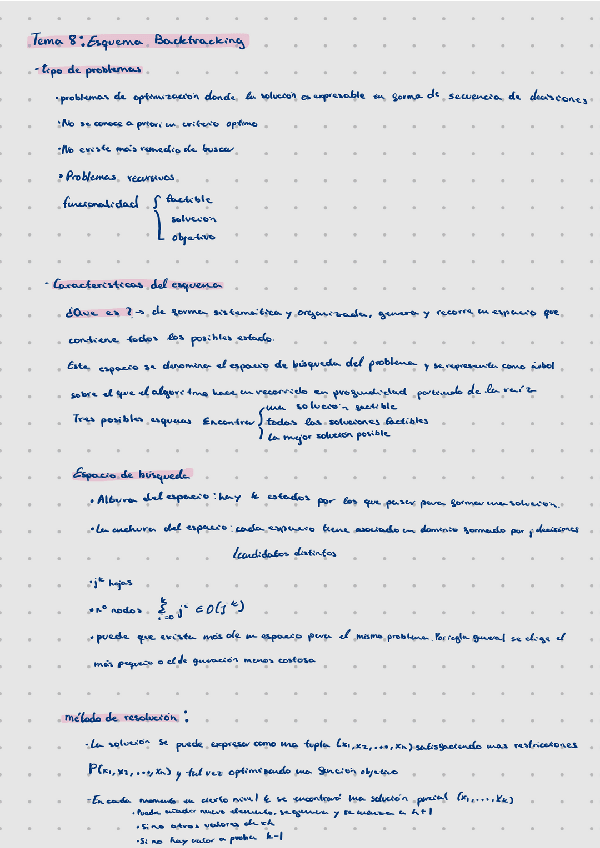 Tema 8: Esquema Backtracking
- tipo de problemas
· problemas de optimización donde la solución es expresable en forma de secuencia de decisiones
· No se conoce a priori un criterio optimo
· No existe más remedio de buscar
· Problemas recursivos
funcionalidad { factible
solución
objetivo
- Características del esquema
¿Que es? → de forma sistemática y organizada, genera y recorre un espacio que
contiene todos los posibles estado.
Este espacio se denomina el espacio de búsqueda del problema y se representa como árbol
sobre el que el algoritmo hace un recorrido en profundidad partiendo de la raíz
Tres posibles esquemas Encontrar { una solución factible
todas las soluciones factibles
la mejor solución posible
Espacio de búsqueda
· Altura del espacio: hay k estados por los que pasar para formar una solución.
· La anchura del espacio: cada espacio tiene asociado un dominio formado por j decisiones
/candidatos distintos
· j^k hojas
· nº nodos ∑_{i=0}^{k} j^i ∈ O(j^k)
· puede que exista más de un espacio para el mismo problema. Por regla general se elige el
más pequeño o el de generación menos costosa
método de resolución:
· La solución se puede expresar como una tupla (x1, x2, ..., xn) satisfaciendo unas restricciones
P(x1, x2, ..., xn) y tal vez optimizando una función objetivo
- En cada momento un cierto nivel k se encontrará una solución parcial (x1, ..., xk)
· Puede añadir nuevo elemento, se genera y se avanza a k+1
· Si no otros valores de xk
· Si no hay valor a probar k-1